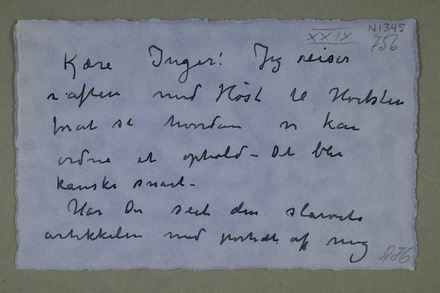 XXIX
N1345
756
Kære Inger! Jeg reiser
iaften med Høst til
forat se hvordan vi kan
ordne et ophold – Det blir
kanske snart –
Har Du seet den slavete
artikkelen med portræt af mig